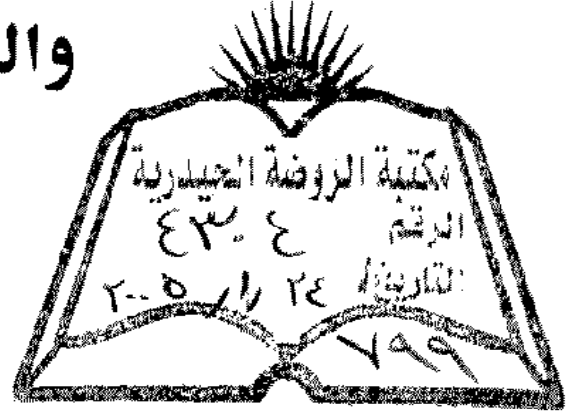 وال
مكتبة الروضة الحيدرية
الرقم ٤٣٠٤
التاريخ / ٢٤
٧٩٩